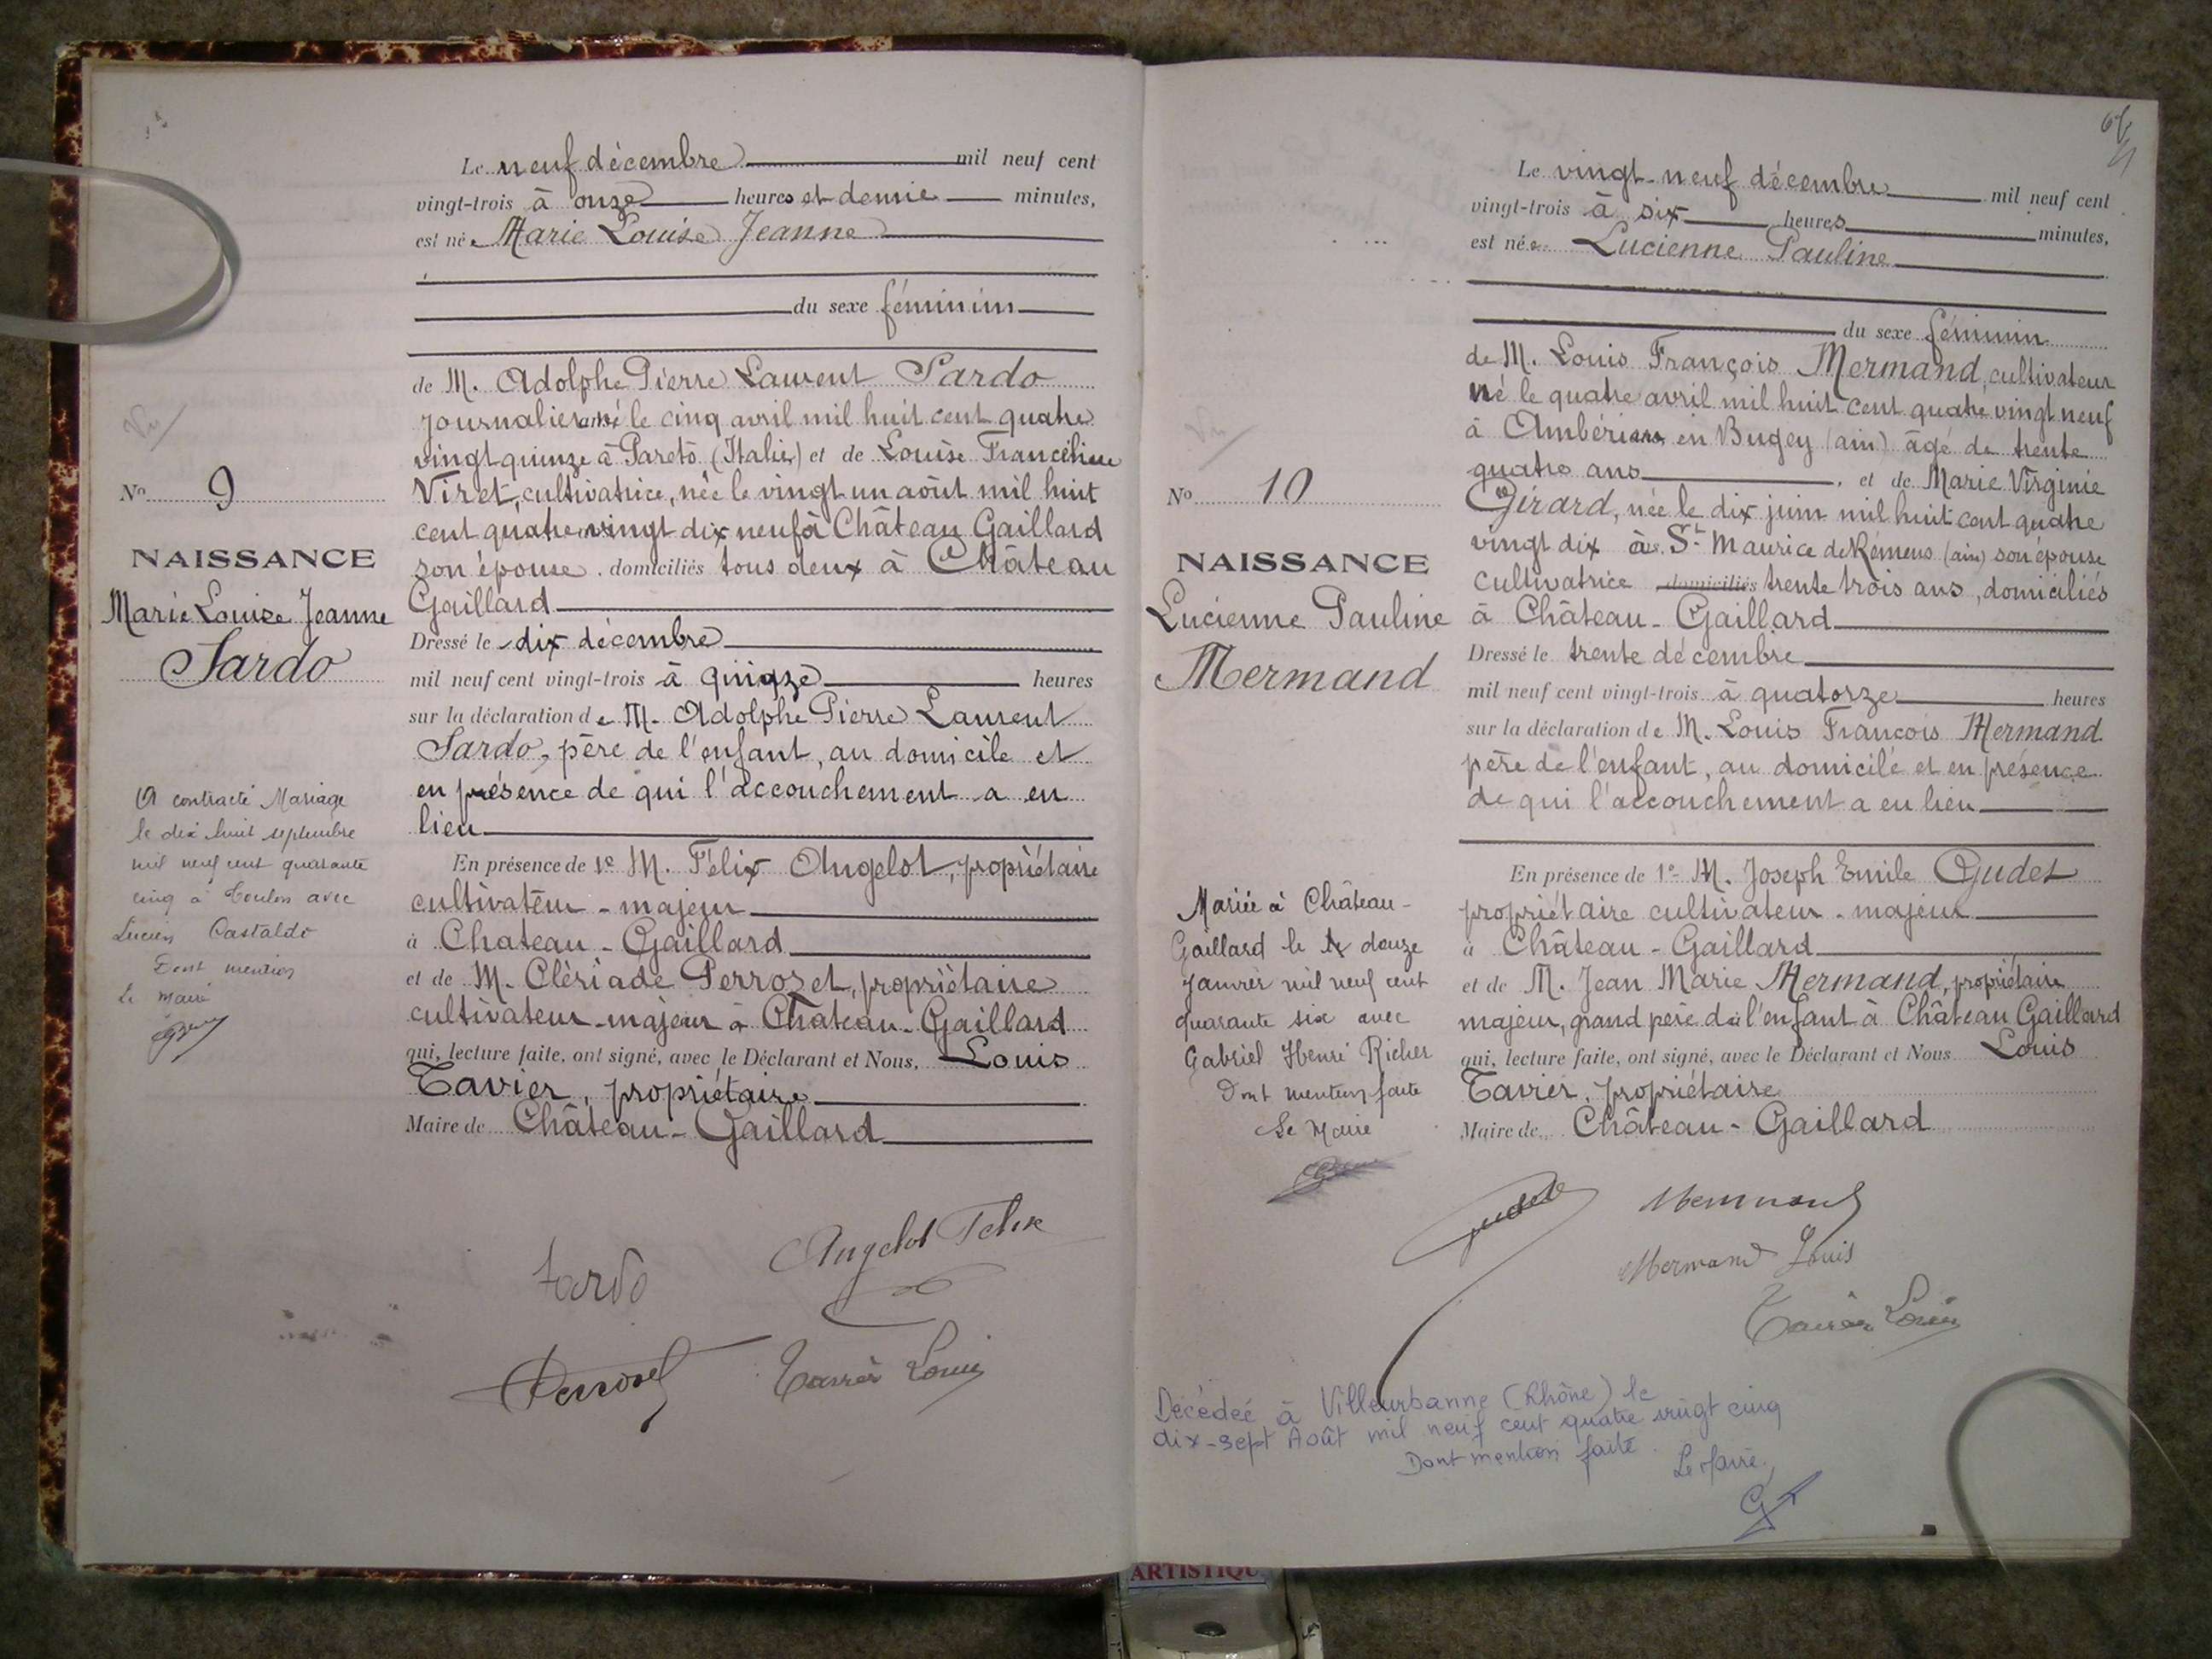 Le neuf décembre mil neuf cent
vingt-trois à onze heures et demie minutes,
est née Marie Louise Jeanne
du sexe féminin
de M. Adolphe Pierre Laurent Sardo
journalier né le cinq avril mil huit cent quatre
vingt quinze à Pareto (Italie) et de Louise Franceline
Viret, cultivatrice, née le vingt un août mil huit
cent quatre vingt dix neuf à Château Gaillard
son épouse. domiciliés tous deux à Château
Gaillard
Dressé le dix décembre
mil neuf cent vingt-trois à quinze heures
sur la déclaration de M. Adolphe Pierre Laurent
Sardo, père de l'enfant, au domicile et
en présence de qui l'accouchement a eu
lieu
En présence de 1º M. Félix Angelot, propriétaire
cultivateur - majeur
à Chateau - Gaillard
et de M. Clériade Perrozet, propriétaire
cultivateur - majeur à Château - Gaillard
qui, lecture faite, ont signé, avec le Déclarant et Nous, Louis
Tavier, propriétaire
Maire de Château - Gaillard
No 9
NAISSANCE
Marie Louise Jeanne
Sardo
A contracté Mariage
le dix huit septembre
mil neuf cent quarante
cinq à Toulon avec
Lucien Castaldo
Dont mention
Le maire
Sardo
Angelot Felix
Perrozet
Tavier Louis
Le vingt-neuf décembre mil neuf cent
vingt-trois à six heures minutes,
est née Lucienne Pauline
du sexe féminin
de M. Louis François Mermand, cultivateur
né le quatre avril mil huit cent quatre vingt neuf
à Ambérieu en Bugey (ain) âgé de trente
quatre ans, et de Marie Virginie
Girard, née le dix juin mil huit cent quatre
vingt dix à St Maurice de Rémens (ain) son épouse
cultivatrice domiciliés trente trois ans, domiciliés
à Château - Gaillard
Dressé le trente décembre
mil neuf cent vingt-trois à quatorze heures
sur la déclaration de M. Louis Francois Mermand
père de l'enfant, au domicile et en présence
de qui l'accouchement a eu lieu
En présence de 1º M. Joseph Emile Gudet
propriétaire cultivateur - majeur
à Château - Gaillard
et de M. Jean Marie Mermand, propriétaire
majeur, grand père de l'enfant à Château Gaillard
qui, lecture faite, ont signé, avec le Déclarant et Nous Louis
Tavier, propriétaire
Maire de Château - Gaillard
No 10
NAISSANCE
Lucienne Pauline
Mermand
Mariée à Château -
Gaillard le douze
janvier mil neuf cent
quarante six avec
Gabriel Henri Richer
Dont mention faite
Le Maire
Gudet
Mermand
Mermand Louis
Tavier Louis
Décédée à Villeurbanne (Rhône) le
dix-sept Août mil neuf cent quatre vingt cinq
Dont mention faite.
Le Maire,
ARTISTIQU